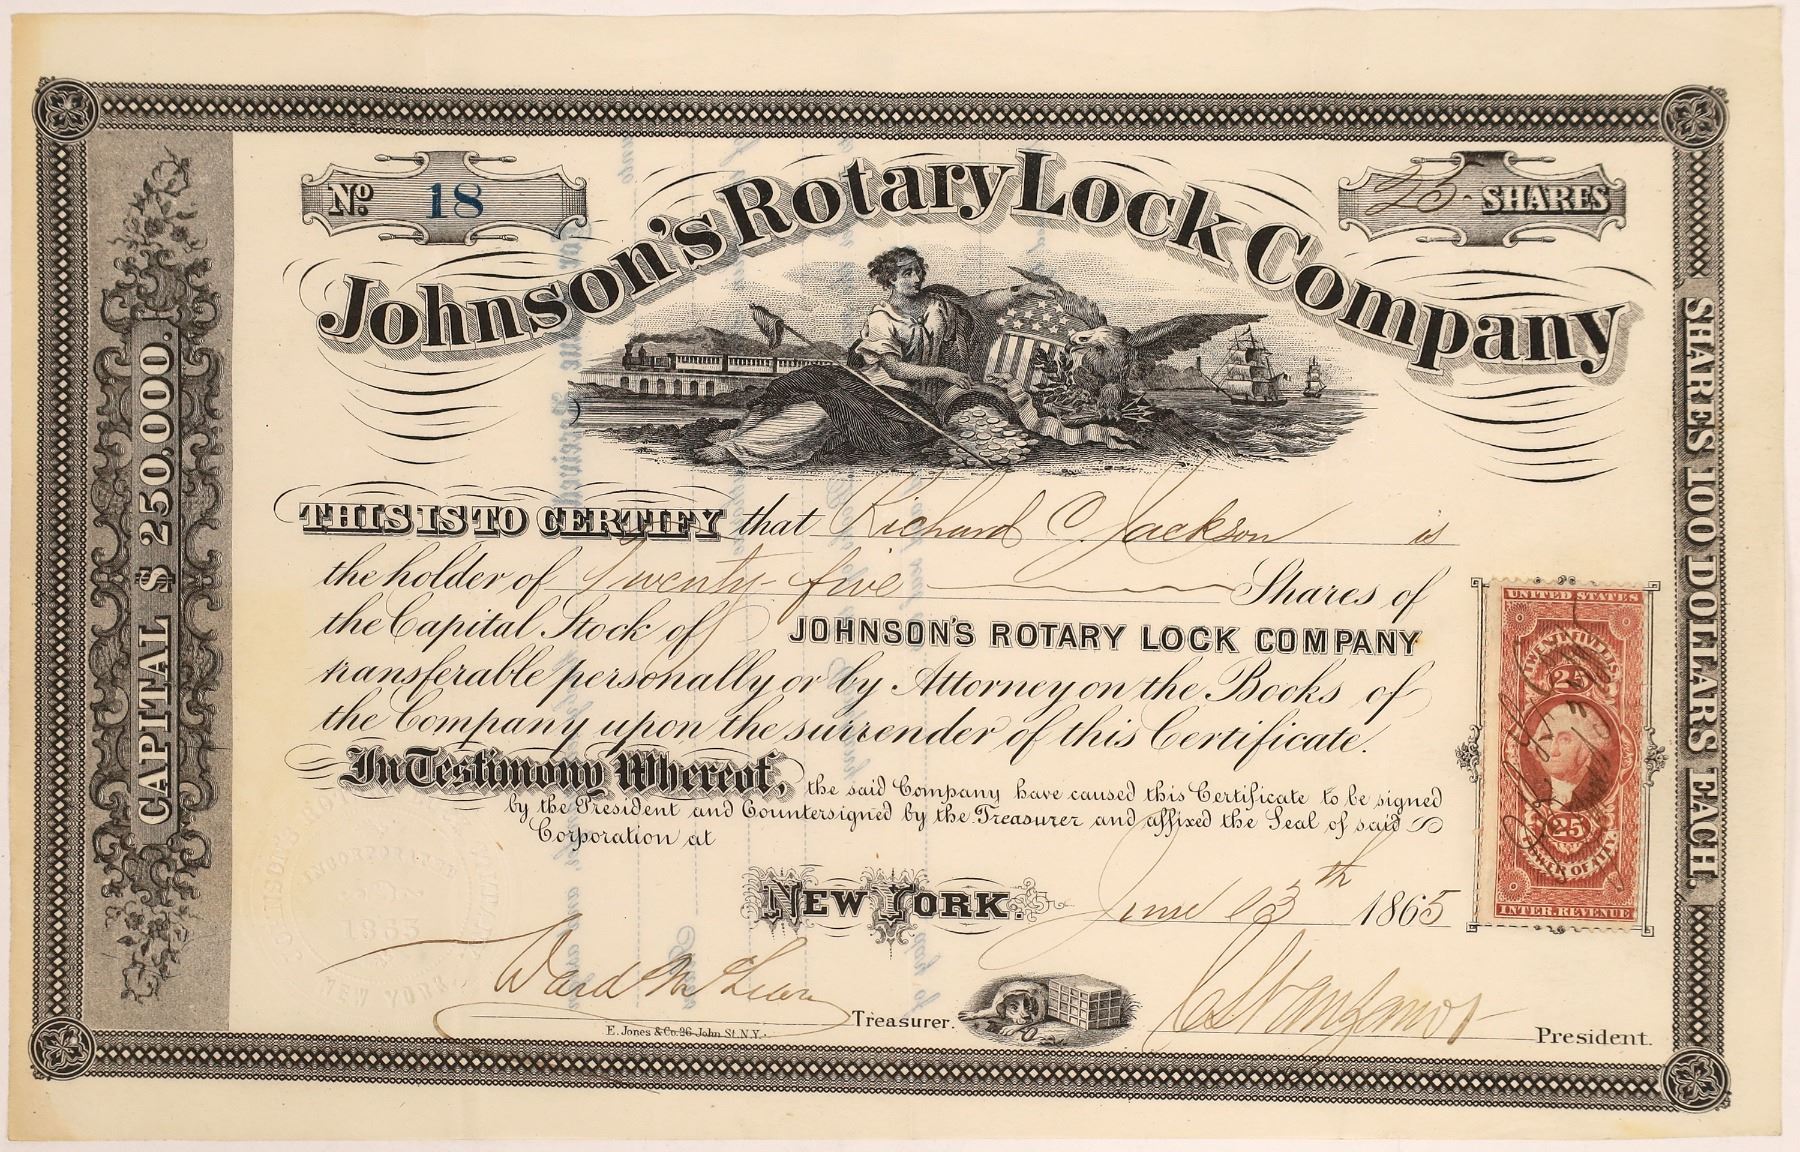 No. 18
Johnson's Rotary Lock Company
25 SHARES
CAPITAL $250,000.
SHARES 100 DOLLARS EACH.
THIS IS TO CERTIFY that Richard C. Jackson is
the holder of Twenty-five Shares of
the Capital Stock of JOHNSON'S ROTARY LOCK COMPANY
transferable personally or by Attorney on the Books of
the Company upon the surrender of this Certificate.
In Testimony Whereof, the said Company have caused this Certificate to be signed
by the President and Countersigned by the Treasurer and affixed the Seal of said
Corporation at
NEW YORK. June 1865
Ward
Treasurer.
President.
E. Jones & Co. 26 John St. N.Y.
UNITED STATES
TWENTY FIVE CENTS
25
25
POWER OF ATTY.
INTER. REVENUE
JOHNSON'S ROTARY
INCORPORATED
1865
NEW YORK